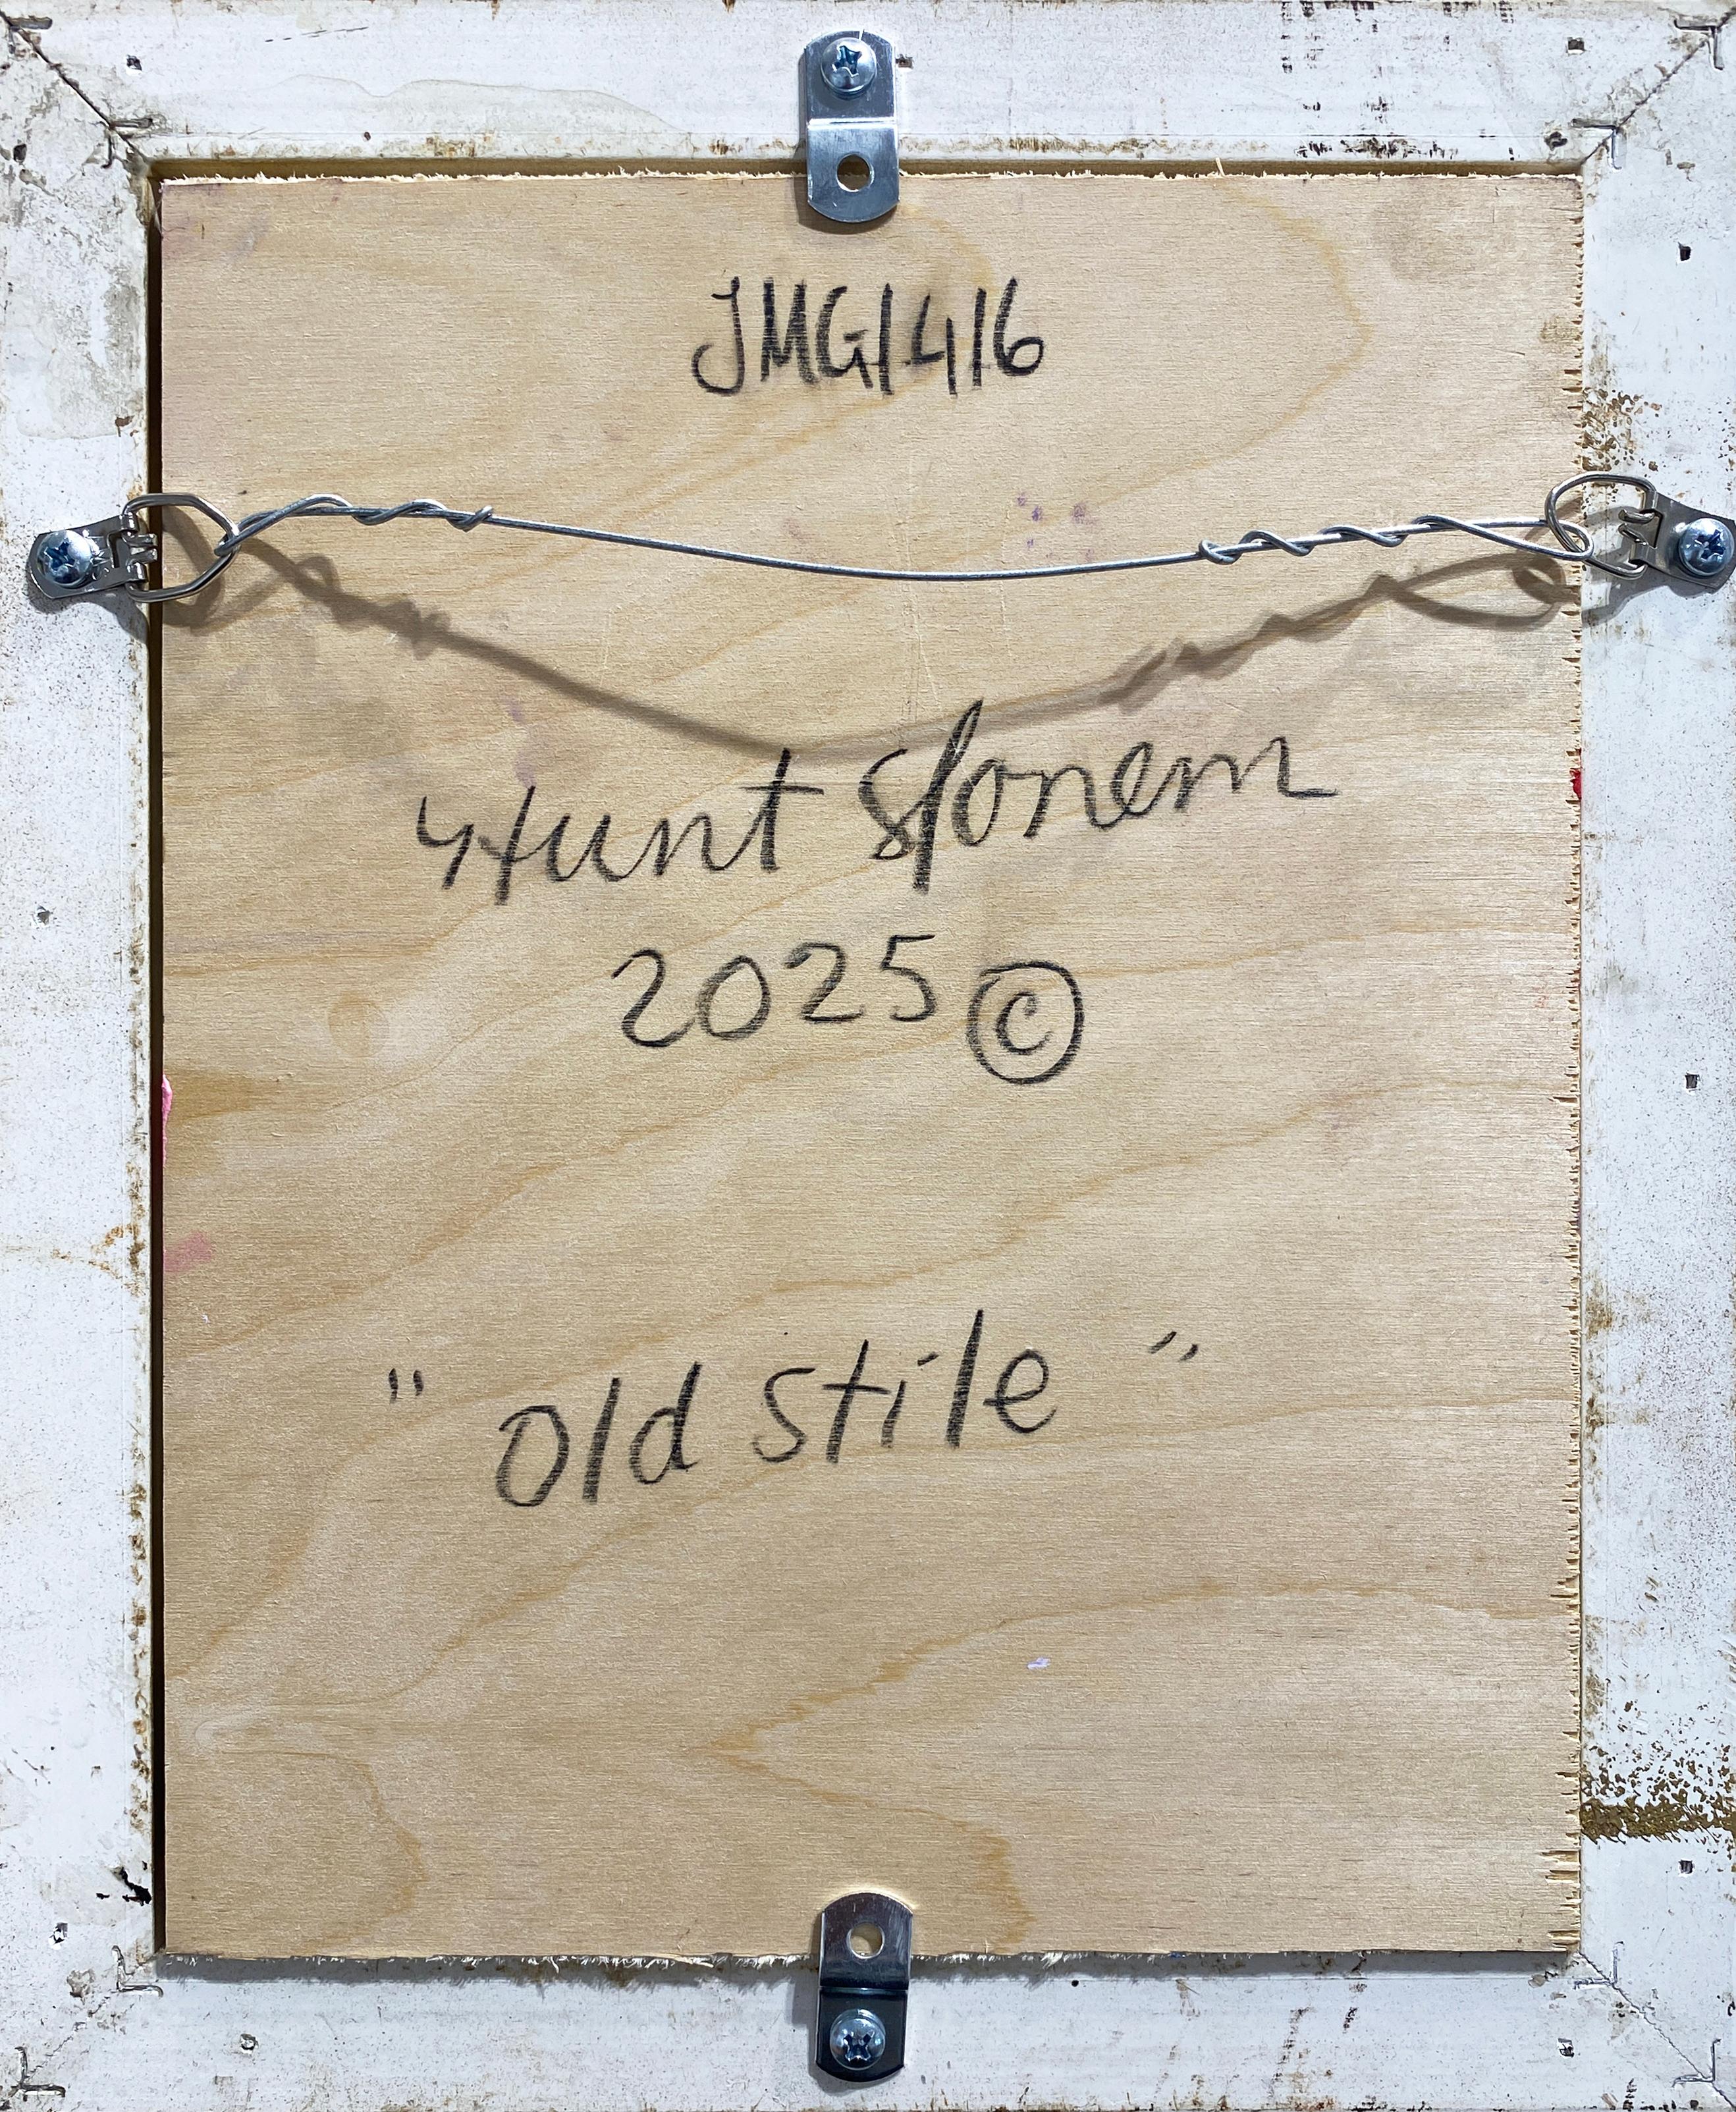 JMG1416
Hunt Slonem
2025 ©
"Old Stile"